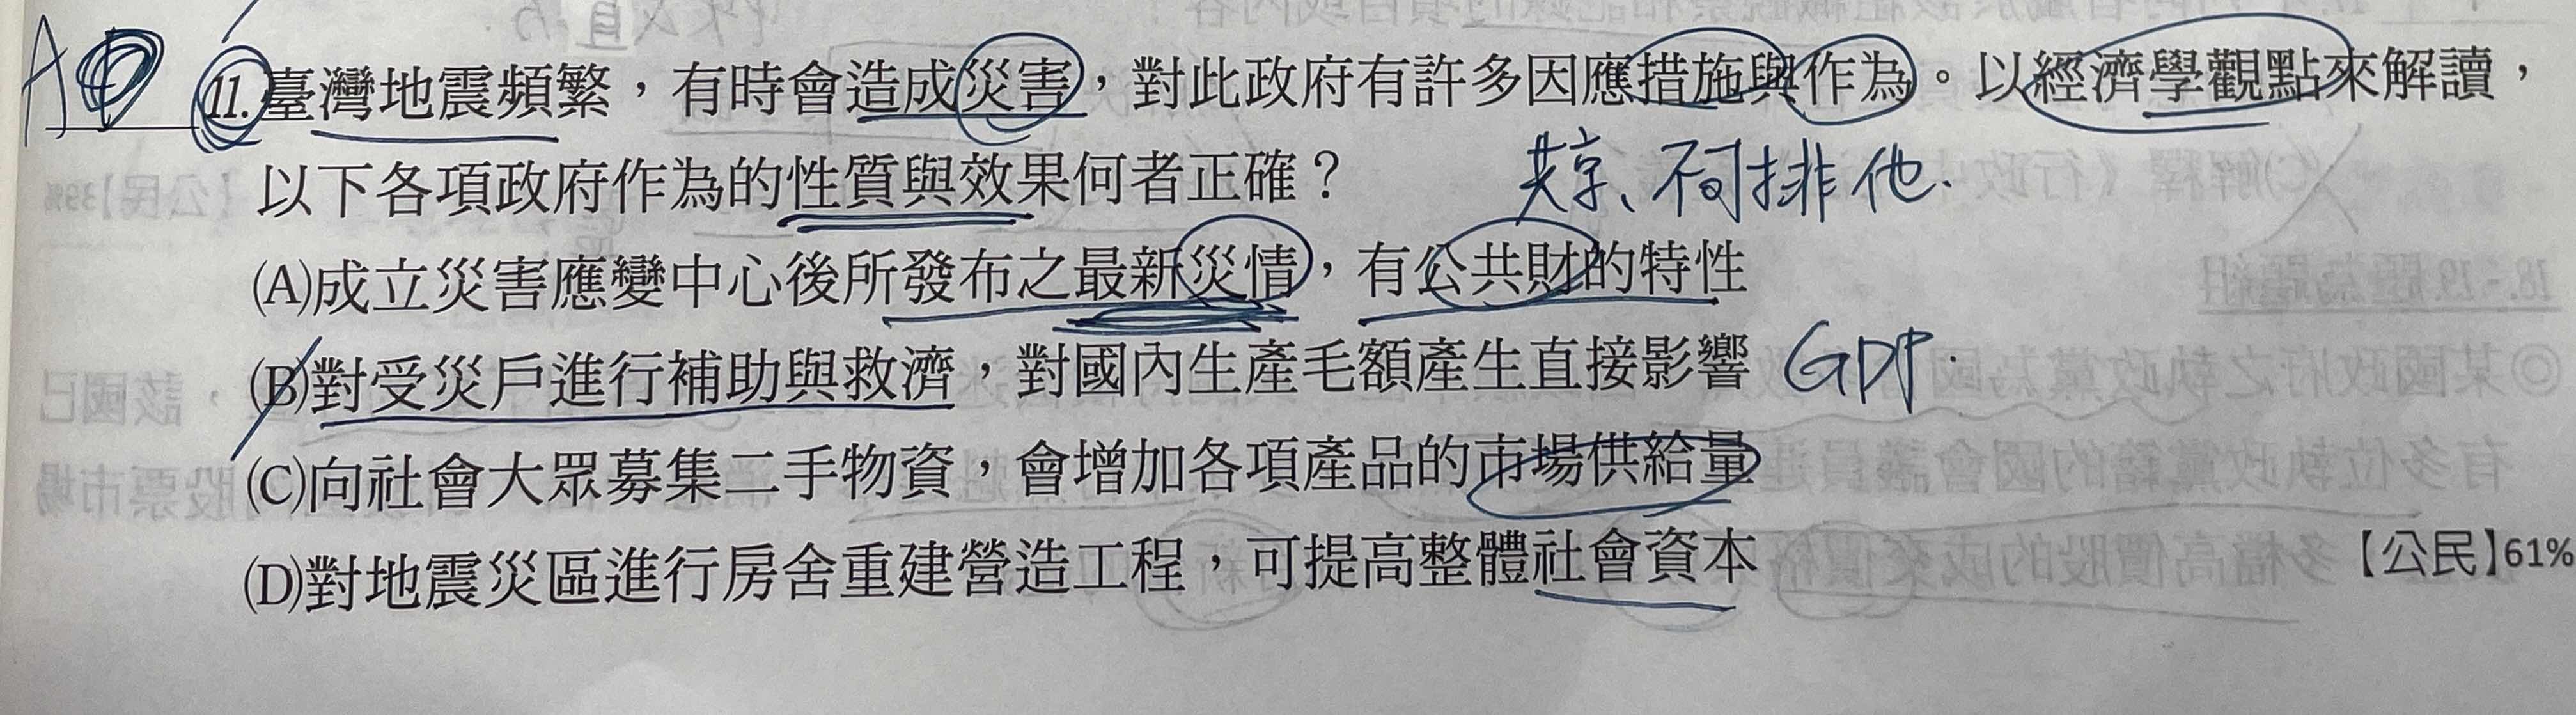 A
11.臺灣地震頻繁,有時會造成災害,對此政府有許多因應措施與作為。以經濟學觀點來解讀,
以下各項政府作為的性質與效果何者正確?
共享、不可排他.
(A)成立災害應變中心後所發布之最新災情,有公共財的特性
(B)對受災戶進行補助與救濟,對國內生產毛額產生直接影響 GDP.
(C)向社會大眾募集二手物資,會增加各項產品的市場供給量
(D)對地震災區進行房舍重建營造工程,可提高整體社會資本 【公民】61%